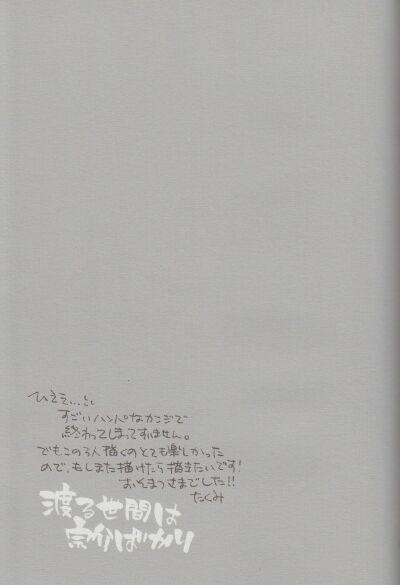 ひええぃ…
すごいハンパなカンジで
終わってしまってすいません。
でもこの3人描くのとても楽しかった
ので、もしまた描けたら描きたいです!
おそまつさまでした!!
たくみ
渡る世間は
宗介ばかり